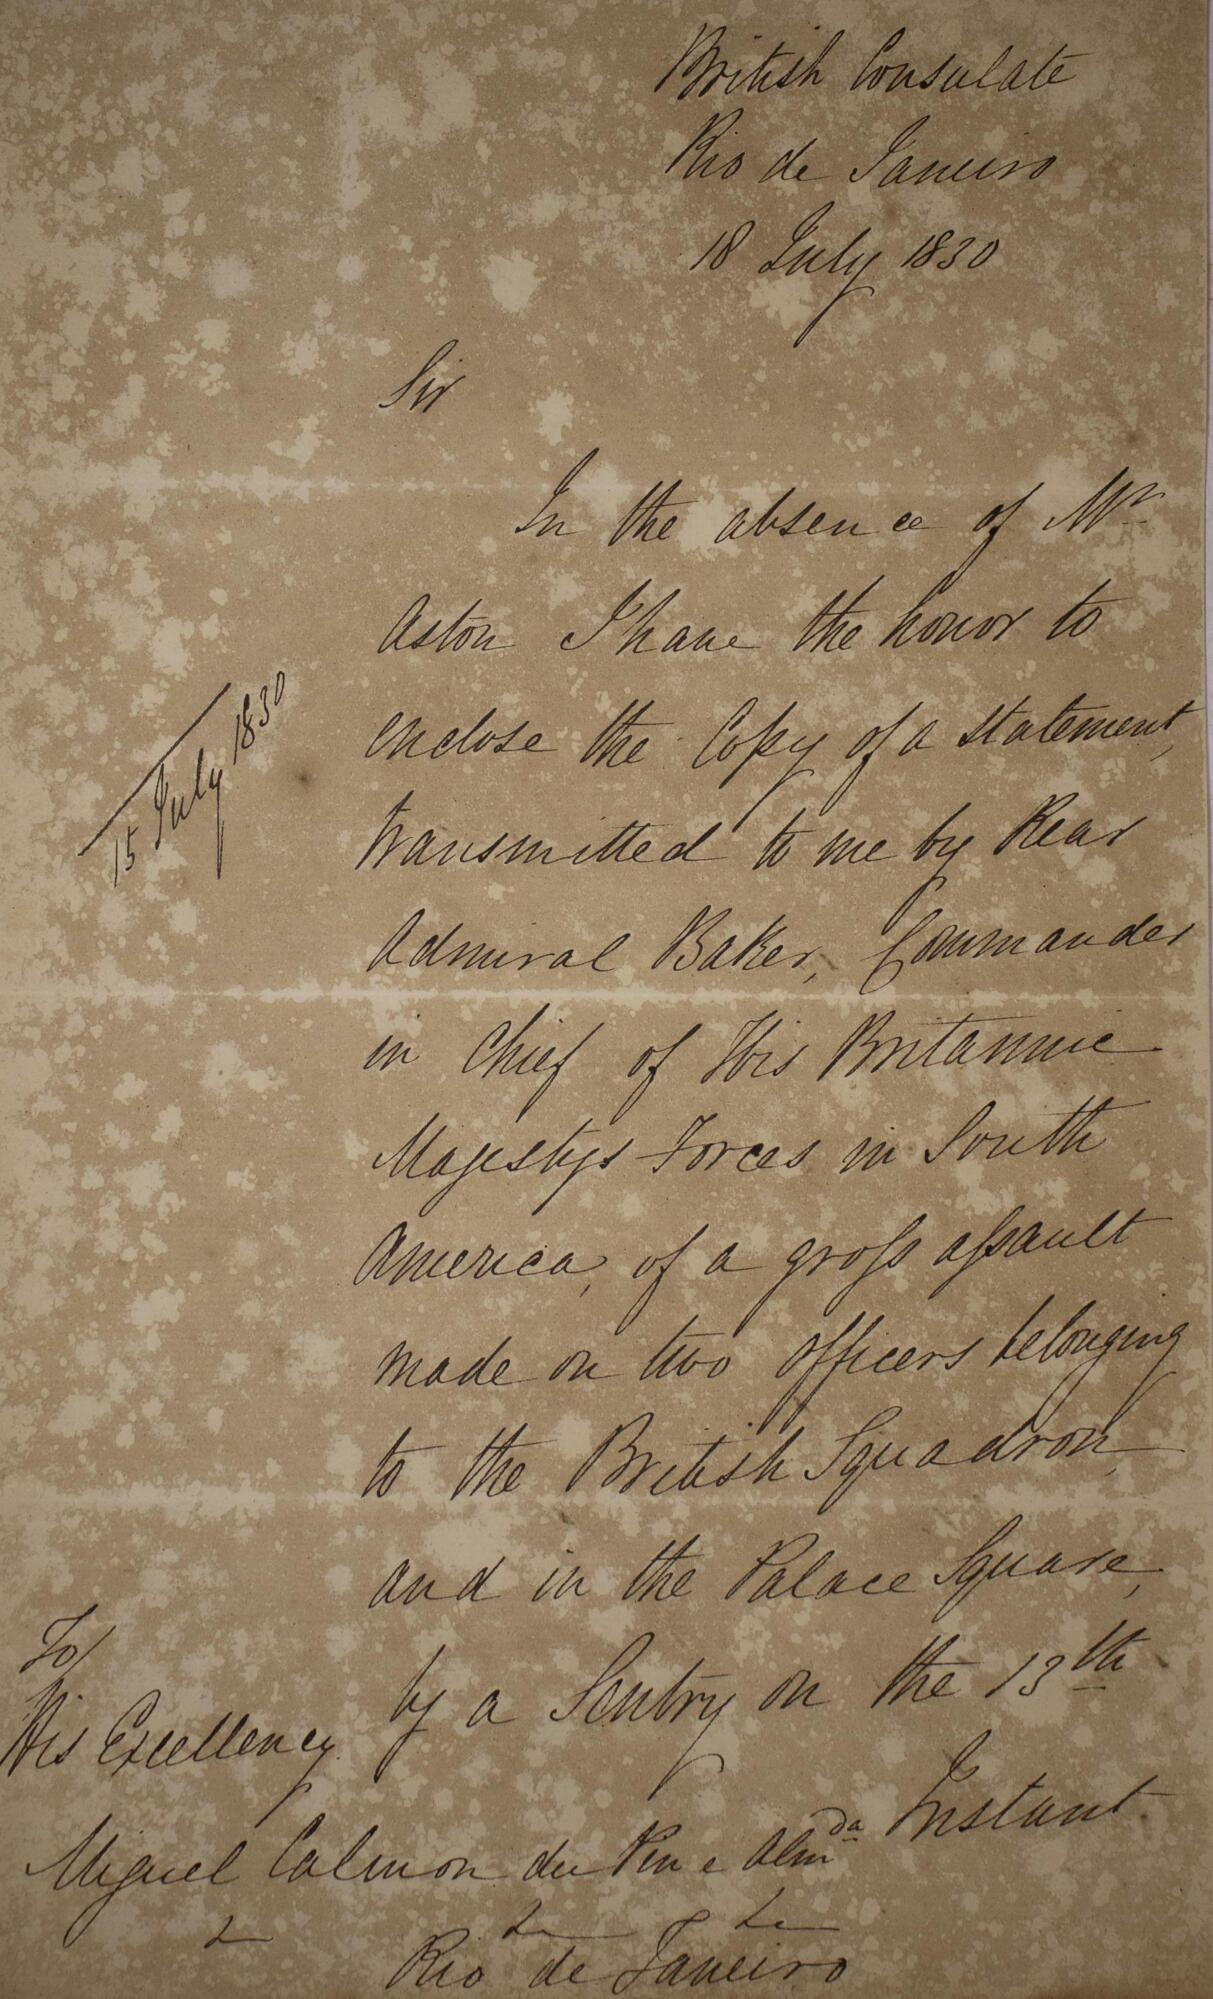 British Consulate
Rio de Janeiro
18 July 1830
Sir
In the absence of Mr
Aston I have the honor to
enclose the Copy of a statement,
transmitted to me by Rear
Admiral Baker, Commander
in Chief of His Britannic
Majestys Forces in South
America, of a gross assault
made on two officers belonging
to the British Squadron,
and in the Palace Square,
by a Sentry on the 13th
Instant
15 July 1830
To
His Excellency
Miguel Calmon du Pin e Almda
Rio de Janeiro